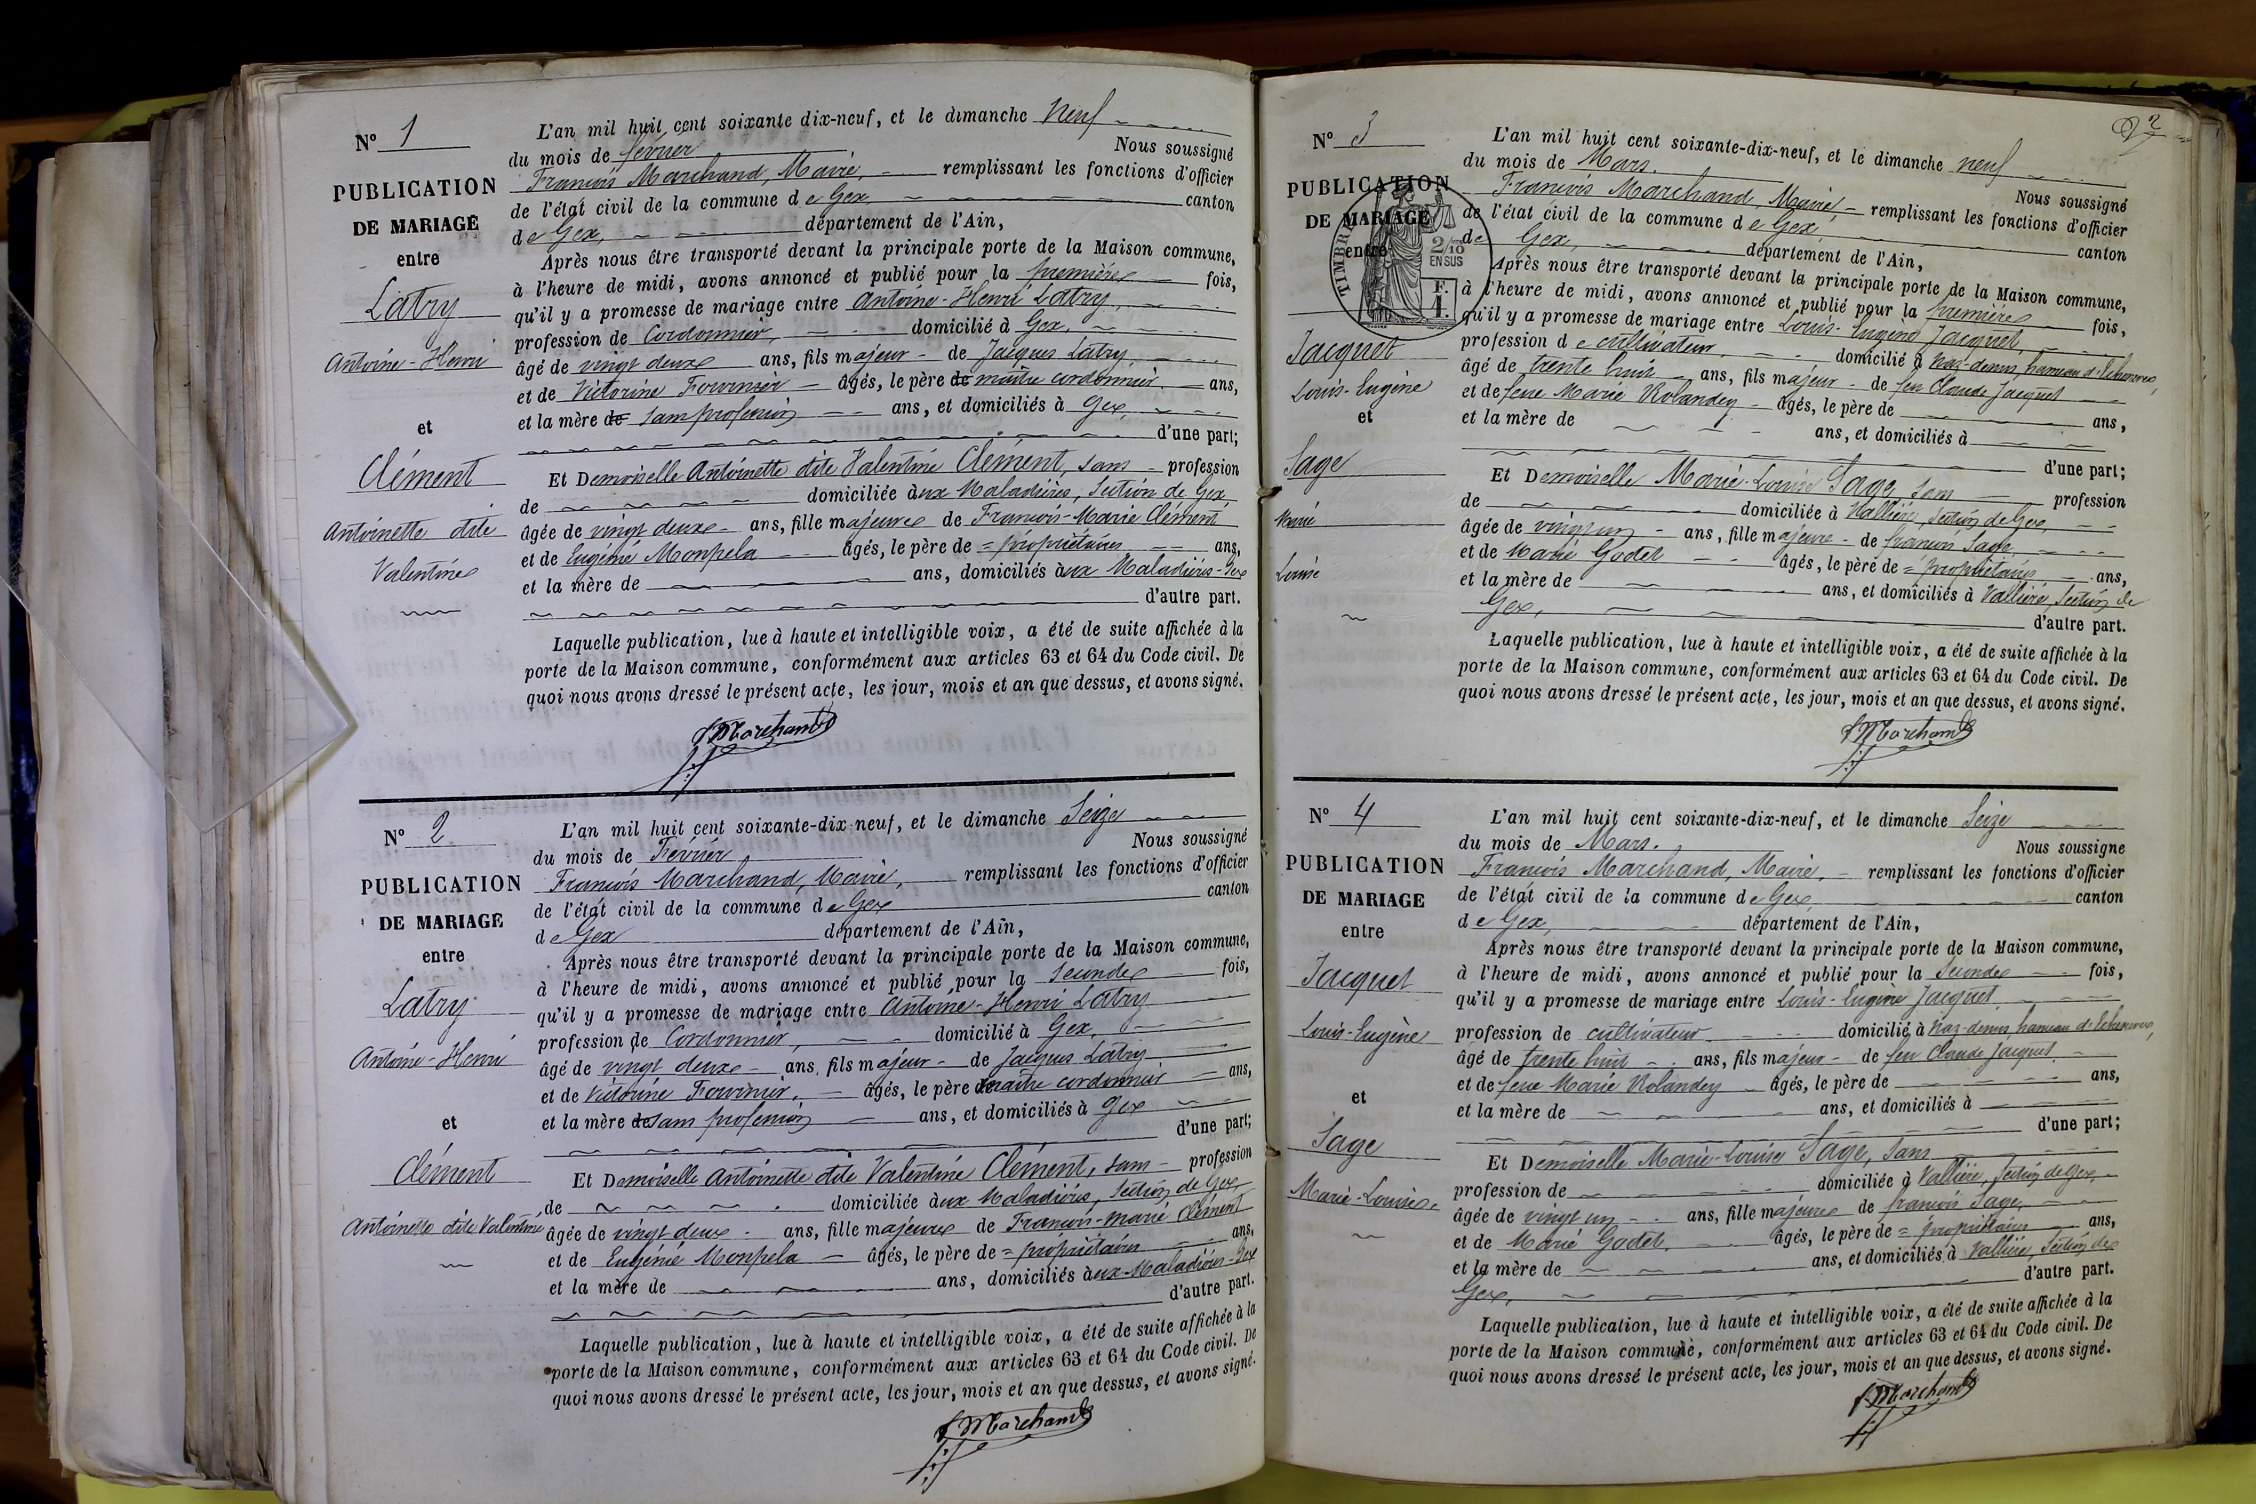 N° 1
PUBLICATION
DE MARIAGE
entre
Latry
Antoine-Henri
et
Clément
Antoinette dite
Valentine
L'an mil huit cent soixante dix-neuf, et le dimanche neuf
du mois de février Nous soussigné
François Marchand, Maire, remplissant les fonctions d'officier
de l'état civil de la commune de Gex, canton
de Gex, département de l'Ain,
Après nous être transporté devant la principale porte de la Maison commune,
à l'heure de midi, avons annoncé et publié pour la première fois,
qu'il y a promesse de mariage entre Antoine-Henri Latry,
profession de Cordonnier, domicilié à Gex,
âgé de vingt deux ans, fils majeur de Jacques Latry
et de Victorine Fournier âgés, le père de maître cordonnier ans,
et la mère de sans profession ans, et domiciliés à Gex,
d'une part;
Et Demoiselle Antoinette dite Valentine Clément, sans profession
de domiciliée aux Maladières, Section de Gex
âgée de vingt deux ans, fille majeure de François-Marie Clément
et de Eugénie Monpela âgés, le père de = propriétaires ans,
et la mère de ans, domiciliés aux Maladières-Gex
d'autre part.
Laquelle publication, lue à haute et intelligible voix, a été de suite affichée à la
porte de la Maison commune, conformément aux articles 63 et 64 du Code civil. De
quoi nous avons dressé le présent acte, les jour, mois et an que dessus, et avons signé.
F Marchand
N° 2
PUBLICATION
DE MARIAGE
entre
Latry
Antoine-Henri
et
Clément
Antoinette dite Valentine
L'an mil huit cent soixante-dix-neuf, et le dimanche Seize
du mois de Février Nous soussigné
François Marchand, Maire, remplissant les fonctions d'officier
de l'état civil de la commune de Gex canton
de Gex département de l'Ain,
Après nous être transporté devant la principale porte de la Maison commune,
à l'heure de midi, avons annoncé et publié pour la seconde fois,
qu'il y a promesse de mariage entre Antoine-Henri Latry
profession de Cordonnier, domicilié à Gex,
âgé de vingt deux ans, fils majeur de Jacques Latry
et de Victorine Fournier, âgés, le père de maître cordonnier ans,
et la mère de sans profession ans, et domiciliés à Gex
d'une part;
Et Demoiselle Antoinette dite Valentine Clément, sans profession
de domiciliée aux Maladières, Section de Gex,
âgée de vingt deux ans, fille majeure de François-Marie Clément
et de Eugénie Monpela âgés, le père de = propriétaires ans,
et la mère de ans, domiciliés aux Maladières-Gex
d'autre part.
Laquelle publication, lue à haute et intelligible voix, a été de suite affichée à la
porte de la Maison commune, conformément aux articles 63 et 64 du Code civil. De
quoi nous avons dressé le présent acte, les jour, mois et an que dessus, et avons signé.
F Marchand
2
N° 3
PUBLICATION
DE MARIAGE
entre
TIMBRE
2/10
EN SUS
F.
1.
Jacquet
Louis-Eugène
et
Sage
Marie
Louise
L'an mil huit cent soixante-dix-neuf, et le dimanche neuf
du mois de Mars. Nous soussigné
François Marchand, Maire, remplissant les fonctions d'officier
de l'état civil de la commune de Gex, canton
de Gex, département de l'Ain,
Après nous être transporté devant la principale porte de la Maison commune,
à l'heure de midi, avons annoncé et publié pour la première fois,
qu'il y a promesse de mariage entre Louis-Eugène Jacquet,
profession de cultivateur, domicilié à Naz-dessus, hameau d'Echenevex,
âgé de trente huit ans, fils majeur de feu Claude Jacquet
et de feue Marie Rolandey âgés, le père de ans,
et la mère de ans, et domiciliés à
d'une part;
Et Demoiselle Marie-Louise Sage, sans profession
de domiciliée à Vallière, Section de Gex,
âgée de vingt un ans, fille majeure de François Sage,
et de Marie Godet âgés, le père de = propriétaires ans,
et la mère de ans, et domiciliés à Vallière, Section de
Gex, d'autre part.
Laquelle publication, lue à haute et intelligible voix, a été de suite affichée à la
porte de la Maison commune, conformément aux articles 63 et 64 du Code civil. De
quoi nous avons dressé le présent acte, les jour, mois et an que dessus, et avons signé.
F Marchand
N° 4
PUBLICATION
DE MARIAGE
entre
Jacquet
Louis-Eugène
et
Sage
Marie-Louise.
L'an mil huit cent soixante-dix-neuf, et le dimanche Seize
du mois de Mars. Nous soussigné
François Marchand, Maire, remplissant les fonctions d'officier
de l'état civil de la commune de Gex canton
de Gex, département de l'Ain,
Après nous être transporté devant la principale porte de la Maison commune,
à l'heure de midi, avons annoncé et publié pour la Seconde fois,
qu'il y a promesse de mariage entre Louis-Eugène Jacquet
profession de cultivateur domicilié à Naz-dessus, hameau d'Echenevex,
âgé de trente huit ans, fils majeur de feu Claude Jacquet
et de feue Marie Rolandey âgés, le père de ans,
et la mère de ans, et domiciliés à
d'une part;
Et Demoiselle Marie-Louise Sage, sans
profession de domiciliée à Vallière, Section de Gex,
âgée de vingt un ans, fille majeure de François Sage,
et de Marie Godet. âgés, le père de = propriétaires ans,
et la mère de ans, et domiciliés à Vallière, Section de
Gex, d'autre part.
Laquelle publication, lue à haute et intelligible voix, a été de suite affichée à la
porte de la Maison commune, conformément aux articles 63 et 64 du Code civil. De
quoi nous avons dressé le présent acte, les jour, mois et an que dessus, et avons signé.
F Marchand